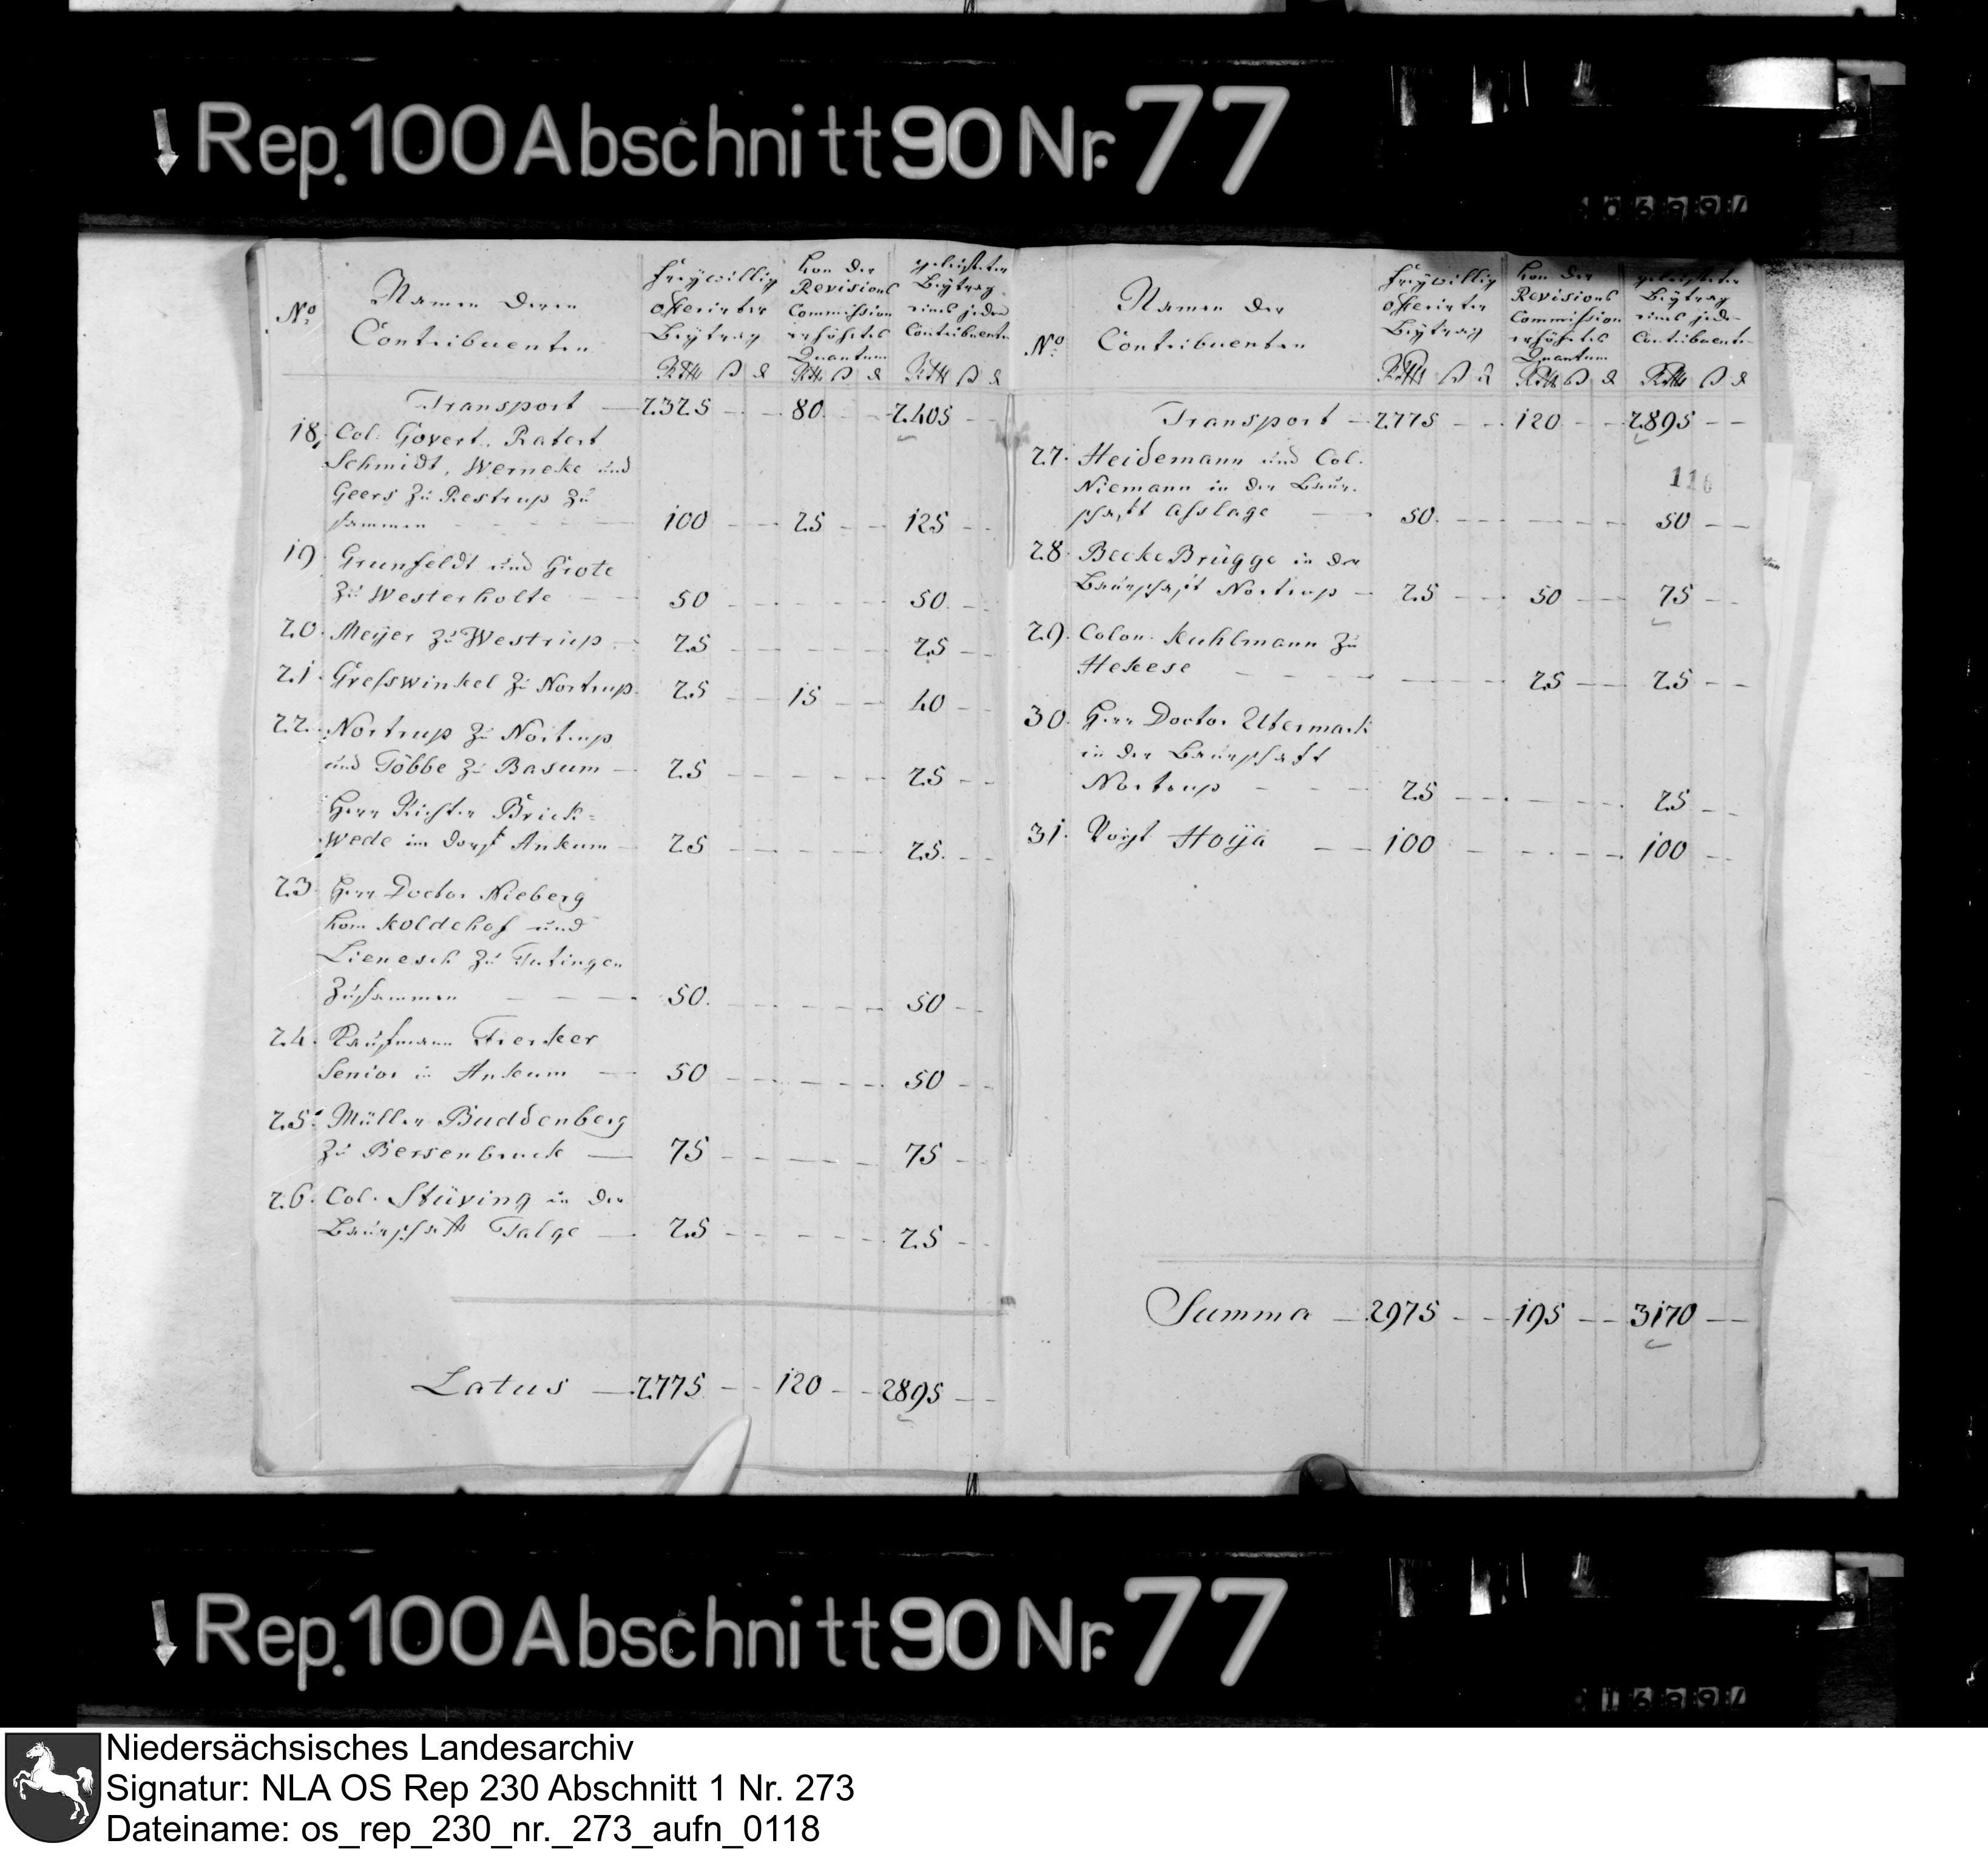 Rep. 100 Abschnitt 90 Nr. 77
No
Namen deren
Contribuenten
Freywillig
offerirter
Beytrag
Von der
Revisions
Commission
erhöhetes
Quantum
geleisteter
Beytrag
eines jeden
Contribuenten
Rthlr ß d
Rthlr ß d
Rthlr ß d
Transport — 2325 - - 80 - - 2405 - -
18. Col. Govert. Ratert
Schmidt, Werneke und
Geers zu Restrup zu
sammen — 100 - - 25 - - 125 - -
19. Grunfeldt und Grote
zu Westerholte — 50 - - - - - 50 - -
20. Meyer zu Westrup - 25 - - - - - 25 - -
21. Greßwinkel zu Nortrup 25 - - 15 - - 40 - -
22. Nortrup zu Nortrup
und Többe zu Basum — 25 - - - - - 25 - -
Herr Richter Brick=
wede im Dorf Ankum - 25 - - - - - 25. - -
23. Herr Doctor Nieberg
vom Koldehof und
Lienesch zu Tutingen
zusammen — 50. - - - - - 50 - -
24. Kaufmann Frerker
Senior in Ankum — 50 - - - - - 50 - -
25. Müller Buddenberg
zu Bersenbruck — 75 - - - - - 75 - -
26. Col. Stüving in der
Baurschaft Talge — 25 - - - - - 25 - -
Latus — 2775 - - 120 - - 2895 - -
No
Namen der
Contribuenten
Freywillig
offerirter
Beytrag
Von der
Revisions
Commission
erhöhetes
Quantum
geleisteter
Beytrag
eines jeden
Contribuenten
Rthlr ß d
Rthlr ß d
Rthlr ß d
Transport — 2775 - - 120 - - 2895 - -
116
27. Heidemann und Col.
Niemann in der Baur.
schaft Aslage — 50. - - - - - 50 - -
28. BeckeBrügge in der
Baurschaft Nortrup — 25 - - 50 - - 75 - -
29. Colon. Kuhlmann zu
Hekese - - - - - 25 - - 25 - -
30. Herr Doctor Utermark
in der Baurschaft
Nortrup - - - 25 - - - - - 25 - -
31. Voigt Hoya — 100 - - - - - 100 - -
Summa — 2975 - - 195 - - 3170 - -
Rep. 100 Abschnitt 90 Nr. 77
Niedersächsisches Landesarchiv
Signatur: NLA OS Rep 230 Abschnitt 1 Nr. 273
Dateiname: os_rep_230_nr._273_aufn_0118